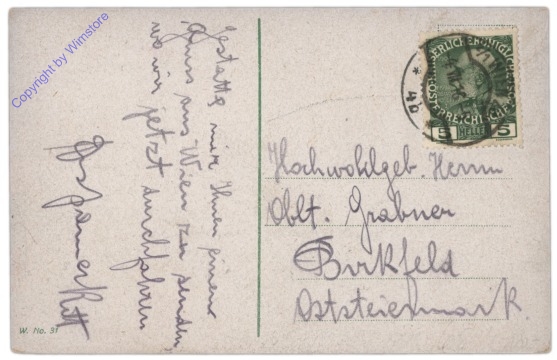 Gestatte mir Ihnen einen
Gruss aus Wien zu senden,
wo wir jetzt durchfahren
Hochwohlgeb. Herrn
Oblt. Grabner
Birkfeld
Oststeiermark.
W. No. 31
5
HELLER
5
Copyright by Wimstore